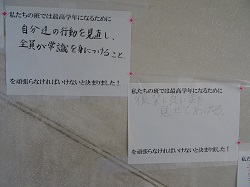 私たちの班では最高学年になるために
自分達の行動を見直し、
全員が常識を身につけること
を頑張らなければいけないと決まりました!
私たちの班では最高学年になるために
を頑張らなければいけないと決まりました!